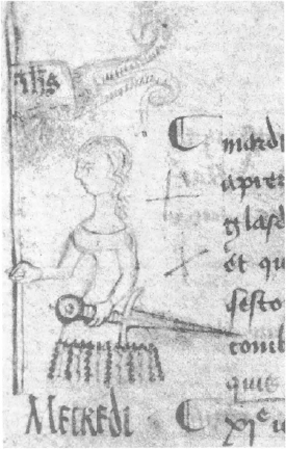 ihs
mardi
apres
glase
et qu
festo
comb
quis
MECREDI
xi^e